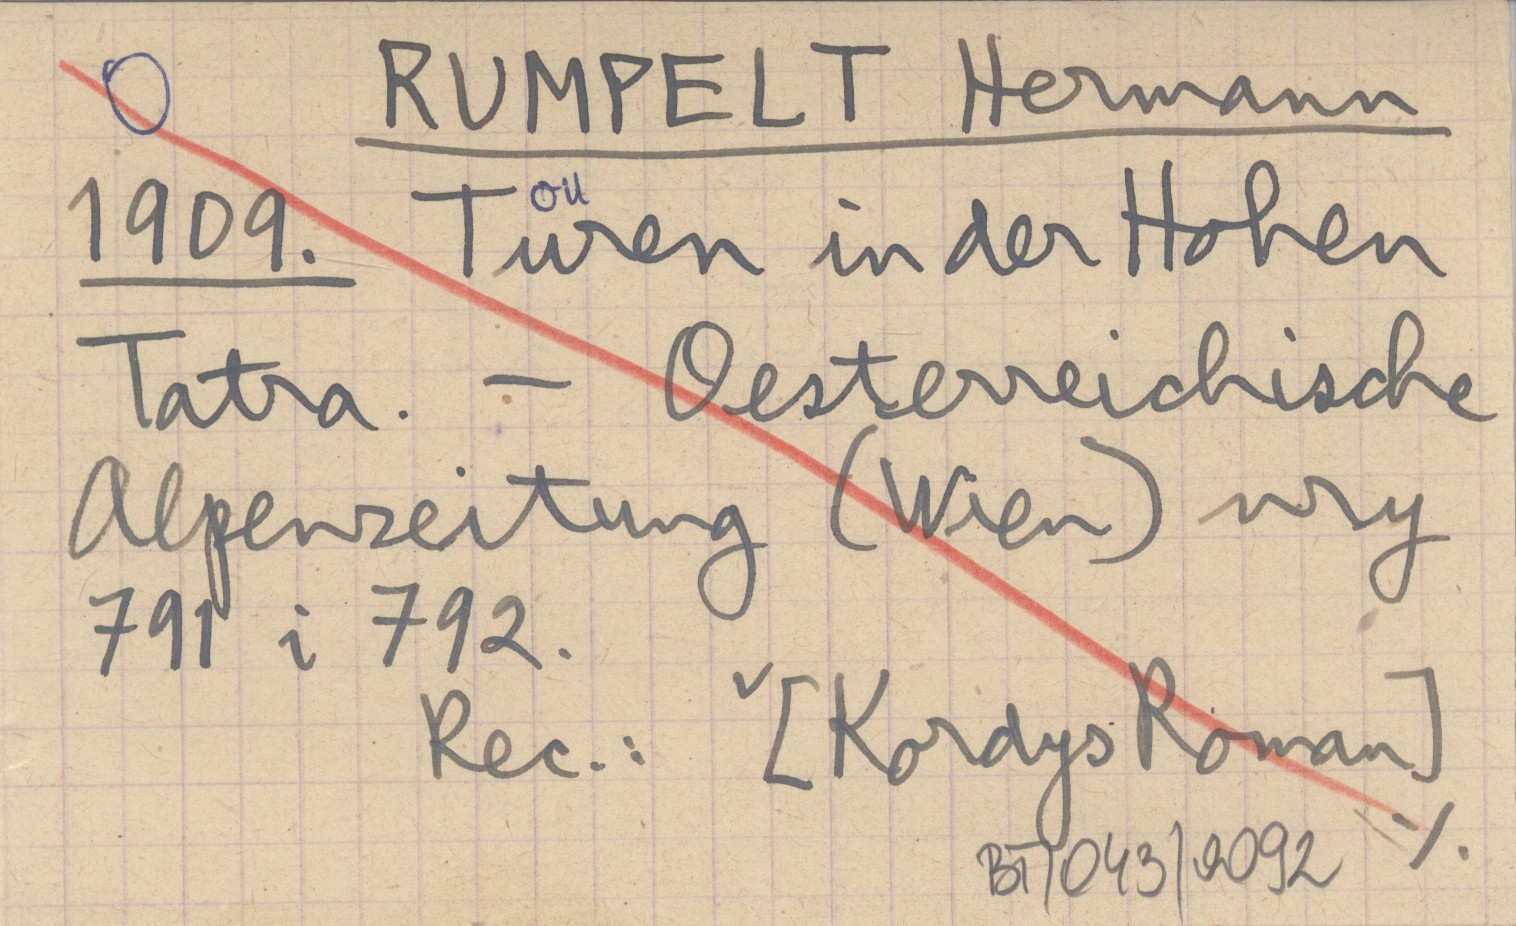 RUMPELT Hermann
1909. Türen in der Hohen
ou
Tatra. — Oesterreichische
Alpenzeitung (Wien) nry
791 i 792.
Rec.: ˅[Kordys Roman]
·/.
BT/043/2092